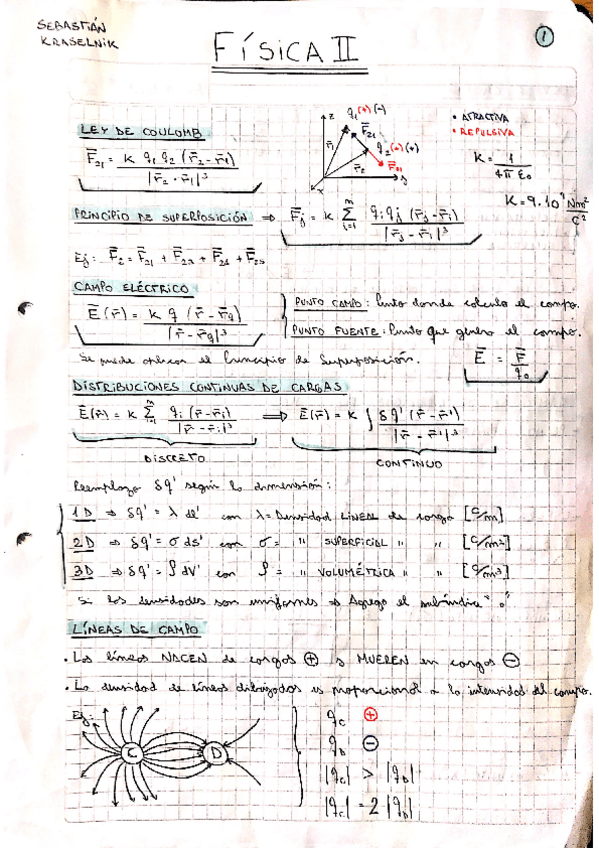 SEBASTIÁN
KRASELNIK
FÍSICA II
1
LEY DE COULOMB
F̅₂₁ = K q₁ q₂ (r̅₂ - r̅₁) / |r̅₂ - r̅₁|³
z
q₁ (+) (-)
F̅₂₁
q₂ (+) (+)
r̅₁
r̅₂
F̅₂₁
y
x
• ATRACTIVA
• REPULSIVA
K = 1 / 4π ε₀
K = 9.10⁹ Nm² / C²
PRINCIPIO DE SUPERPOSICIÓN ⇒ F̅j = K Σ i=1 m qi qj (r̅j - r̅i) / |r̅j - r̅i|³
Ej: F̅₂ = F̅₂₁ + F̅₂₃ + F̅₂₄ + F̅₂₅
CAMPO ELÉCTRICO
E̅(r̅) = K q (r̅ - r̅q) / |r̅ - r̅q|³
PUNTO CAMPO: Punto donde calculo el campo.
PUNTO FUENTE: Punto que genera el campo.
Se puede aplicar el Principio de Superposición.
E̅ = F̅ / q₀
DISTRIBUCIONES CONTINUAS DE CARGAS
E̅(r̅) = K Σ i=1 m qi (r̅ - r̅i) / |r̅ - r̅i|³ ⇒ E̅(r̅) = K ∫ δq' (r̅ - r̅') / |r̅ - r̅'|³
DISCRETO
CONTINUO
Reemplazo δq' según la dimensión:
1D ⇒ δq' = λ dl' con λ = Densidad LINEAL de carga [C/m]
2D ⇒ δq' = σ ds' con σ = " SUPERFICIAL " " [C/m²]
3D ⇒ δq' = ρ dV' con ρ = " VOLUMÉTRICA " " [C/m³]
Si las densidades son uniformes ⇒ Agrego el subíndice "₀"
LÍNEAS DE CAMPO
• Las líneas NACEN de cargas ⊕ y MUEREN en cargas ⊖
• La densidad de líneas dibujadas es proporcional a la intensidad del campo.
Ej:
C
D
qc ⊕
qD ⊖
|qc| > |qD|
|qc| = 2 |qD|